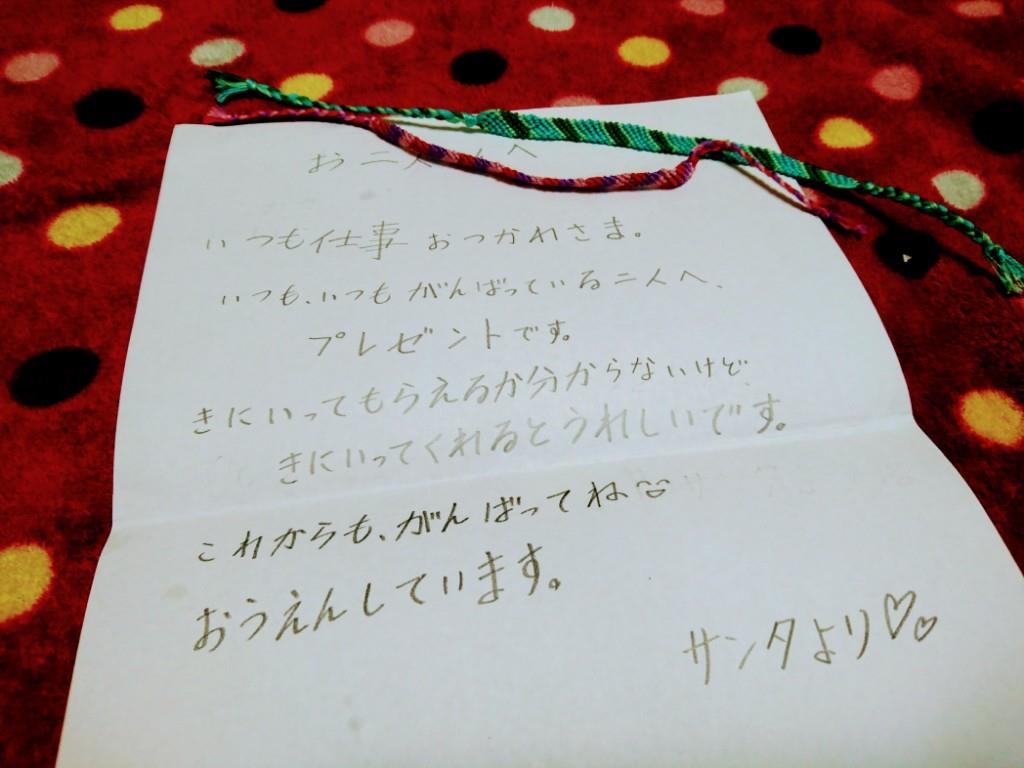 お二人へ
いつも仕事おつかれさま。
いつも、いつもがんばっている二人へ、
プレゼントです。
きにいってもらえるか分からないけど、
きにいってくれるとうれしいです。
これからも、がんばってね
おうえんしています。
サンタより♡♡